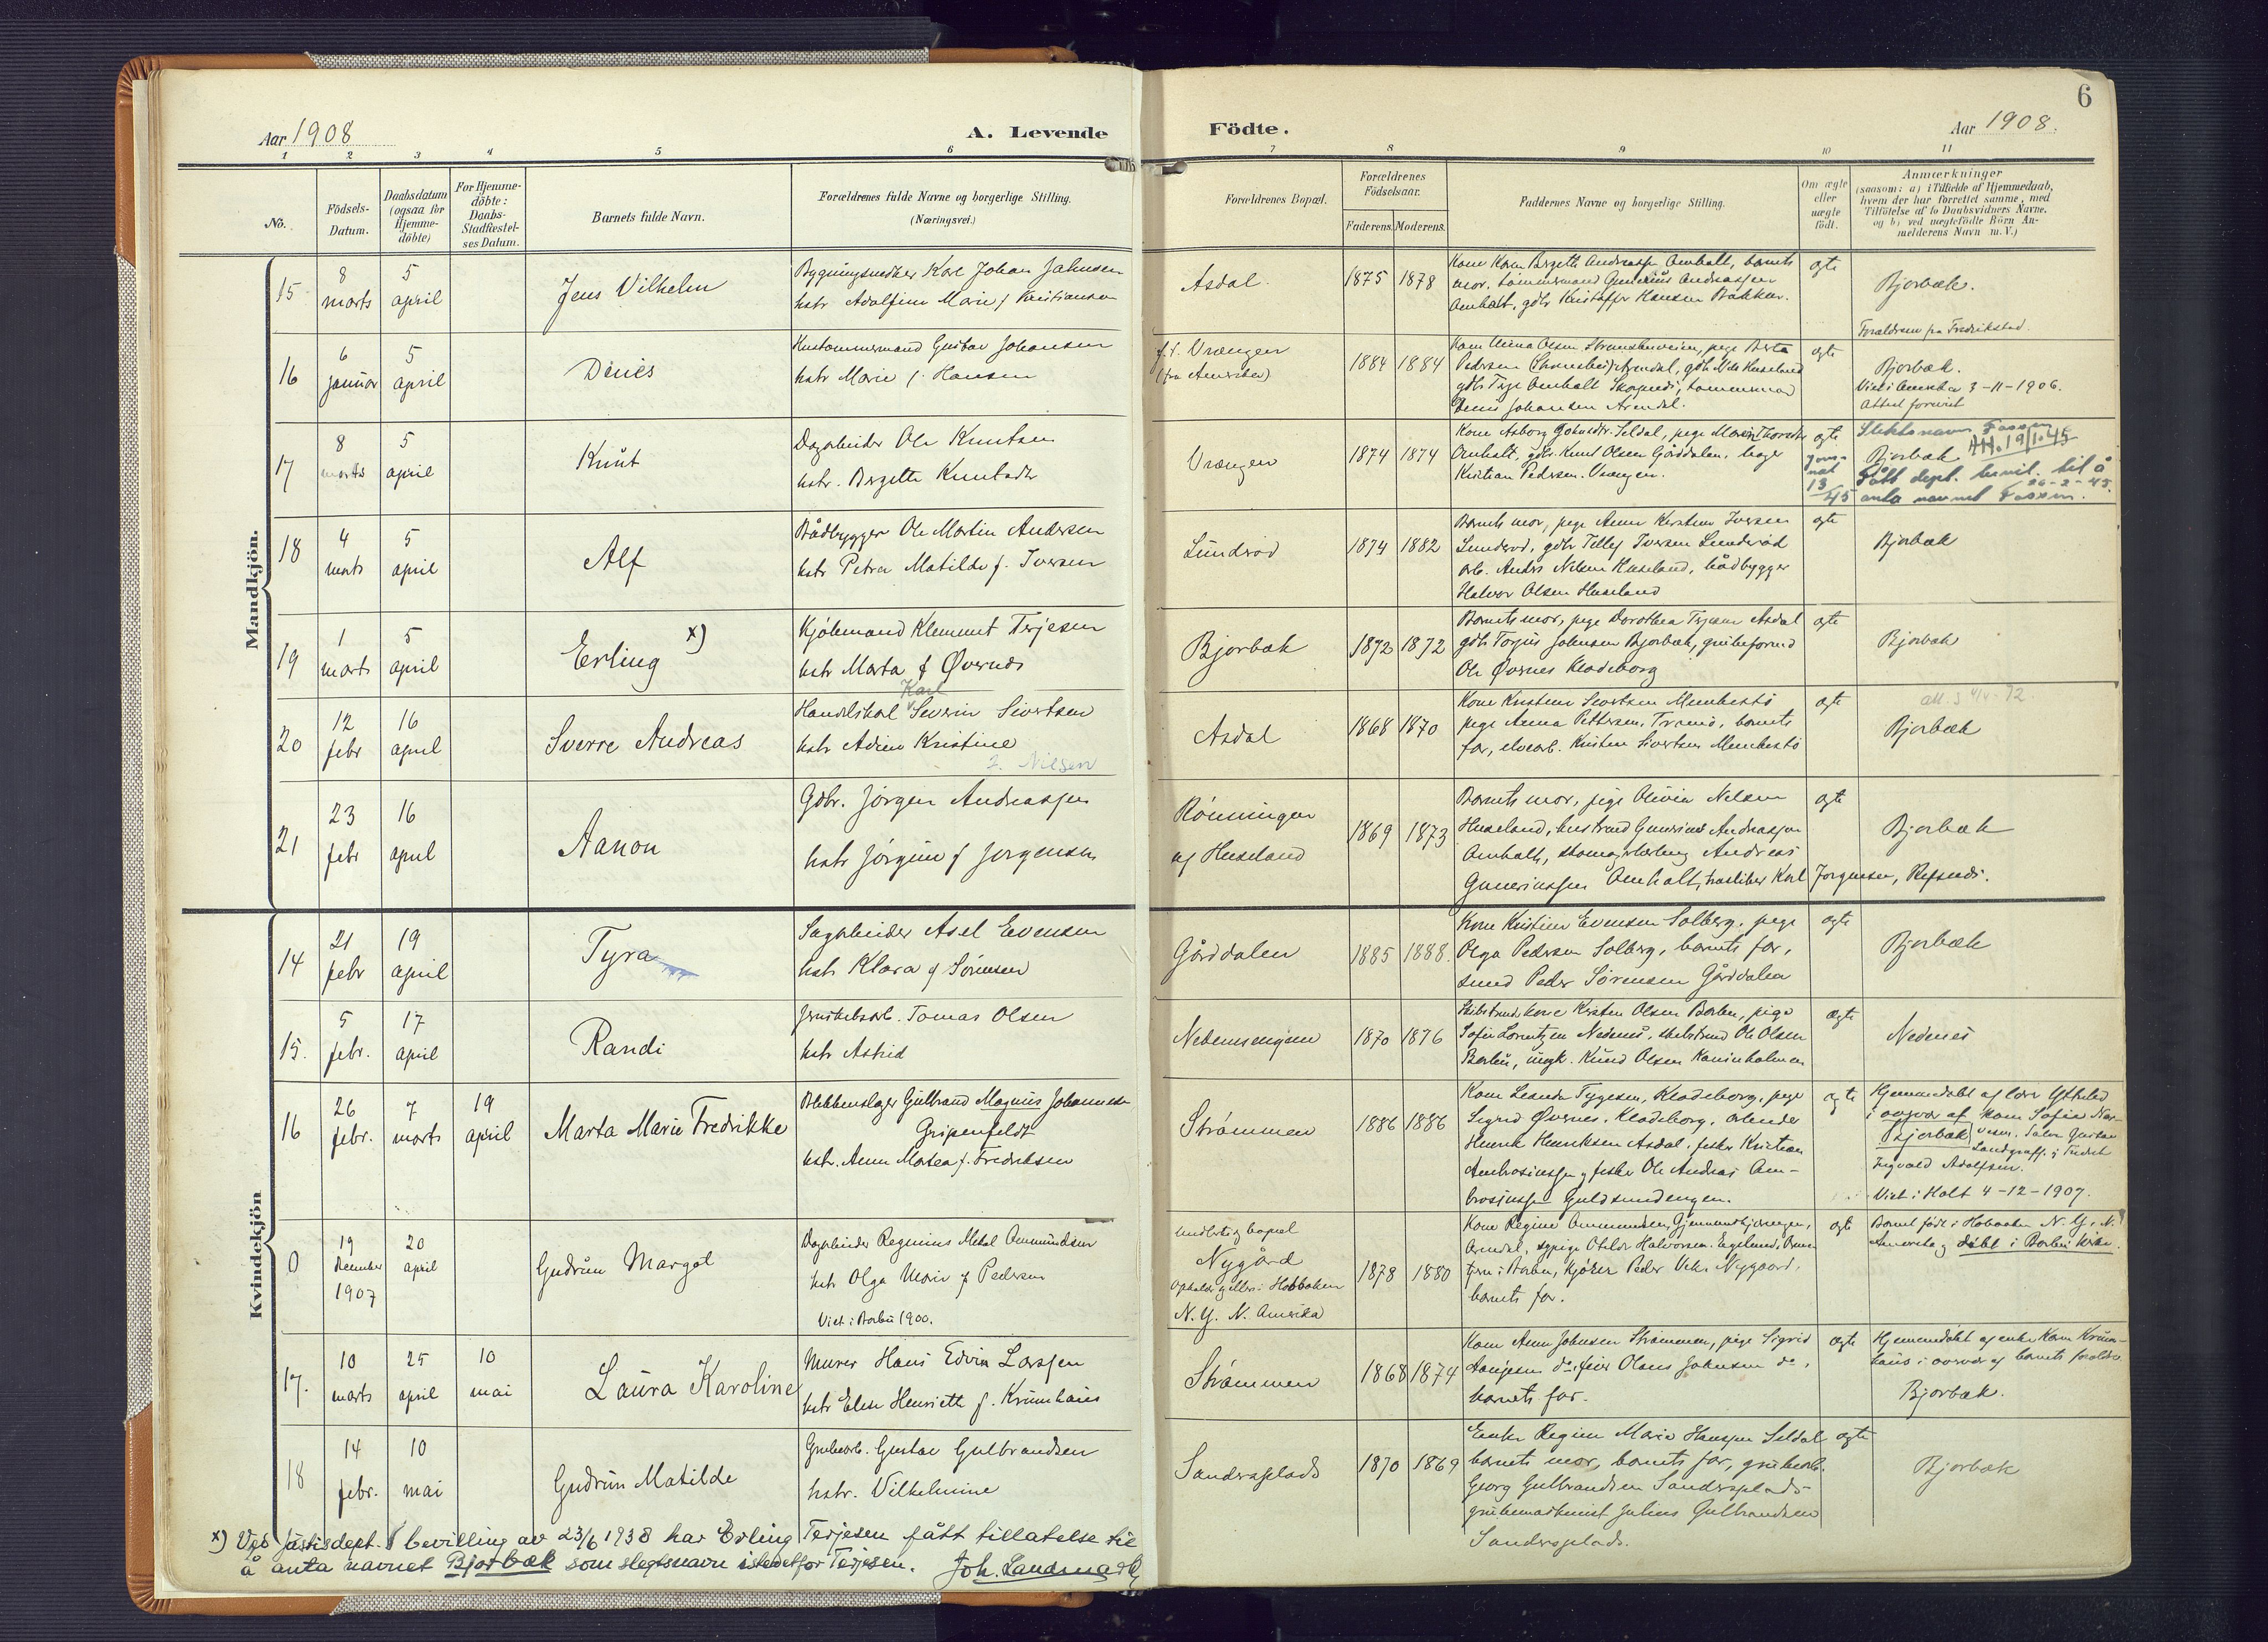 6
Aar 1908
A. Levende
Födte.
Aar 1908.
1 2 3 4 5 6
7 8 9 10 11
No.
Födsels-
Datum.
Daabsdatum
(ogsaa for
Hjemme-
döbte)
For Hjemme-
döbte:
Daabs-
Stadfæstel-
ses Datum.
Barnets fulde Navn.
Forældrenes fulde Navne og borgerlige Stilling.
(Næringsvei.)
Forældrenes Bopæl.
Forældrenes
Födselsaar.
Faderens. Moderens.
Faddernes Navne og borgerlige Stilling.
Om ægte
eller
uægte
födt.
Anmærkninger
(saasom: a) i Tilfælde af Hjemmedaab,
hvem der har forrettet samme, med
Tilföielse af to Daabsvidners Navne.
og b) ved uægtefödte Börn An-
melderens Navn m. V.)
Mandkjön.
15
8
marts
5
april
Jens Vilhelm
Bygningssnedker Karl Johan Jahnsen
hstr Adolfine Marie f Kristiansen
Asdal.
1875 1878
Kone Karen Bergette Andreassen Amholt, barnets
mor, tømmermand Gunerius Andreassen
Amholt, gdbr Kristoffer Hansen Bakken.
ægte
Bjorbæk.
16
6
januar
5
april
Denies
Gustav Johansen
hstr Marie f. Hansen
f. t. Vrængen
(fra Amerika)
1884 1884
Pedersen Arendal, gdbr Nils Huseland
gdbr Terje Amholt tømmermand
Denis Johansen Arendal.
ægte
Forældrene fra Fredrikstad.
Bjorbæk.
Viet i Amerika 3-11-1906.
Attest forevist
17
8
marts
5
april
Knut
Dagarbeider Ole Knutsen
hstr. Bergette Knutsdtr
Vrængen
1874 1874
Kone Asborg Seldal, pige
Amholt, gdbr. Knut Olsen Gårddalen, bager
Kristian Pedersen Vrængen.
ægte
Jour-
nal
13/45
Slektsnavn Fossen
Bjorbæk AH. 19/1.45
Fått dept. bevil. til å
26-2-45.
anta navnet Fossen.
18
4
marts
5
april
Alf
Bådbygger Ole Martin Andersen
hstr Petra Matilde f. Iversen
Lundrød
1874 1882
Barnets mor, pige Anne Kirstine Iversen
Lunderød, gdbr Tellef Iversen Lunderød
arb. Anders Nilsen Huseland, bådbygger
Halvor Olsen Huseland
ægte
Bjorbæk
19
1
marts
5
april
Erling x)
Kjøbmand Klemmet Terjesen
hstr Marta f Øvernes
Bjorbæk
1872 1872
Barnets mor, pige Dorothea Terjesen Asdal
gdbr Torjus Johnsen Bjorbæk, grubeformd
Ole Øvernes Klodeborg
ægte
Bjorbæk
20
12
febr
16
april
Sverre Andreas
Karl
Handelskarl Severin Sivertsen
hstr Adine Kristine
f. Nilsen
Asdal
1868 1870
Kone Kristine Sivertsen Messelstø
pige Anna Pettersen, Tromø, barnets
far, elvearb. Kristen Sivertsen
ægte
Bjorbæk
21
23
febr
16
april
Aanon
Gdbr. Jörgen Andreassen
hstr Jørgine f Jørgensen
Rønningen
af Huseland
1869 1873
Barnets mor, pige Olivia Nilsen
Huseland, hustrud Gunerius Andreassen
Amholt, skomagerlærling Andreas
Gunerinssen Amholt, Karl Jorgensen, Refsnes.
ægte
Bjorbæk
Kvindekjön
14
21
febr
19
april
Tyra
Sagarbeider Axel Evensen
hstr Klara f Sørensen
Gårddalen
1885 1888.
Kone Kristine Evensen Solberg, pige
Olga Pedersen Solberg, barnets far,
smed Peder Sørensen Gårddalen
ægte
Bjorbæk
15.
5
febr.
17
april
Randi
Tomas Olsen
hstr Astrid
Nedenesengene
1870 1876
Kirsten Olsen Barbu, pige
Sofie Lorentzen Nedenes, Ole Olsen
Barbu, ungk. Knud Olsen Kaninholmen
ægte
Nedenes
16
26
febr.
7
marts
19
april
Marta Marie Fredrikke
Blikkenslager Gulbrand Magnus Johannesen
Gripenfeldt
hstr. Anna Martea f. Fredriksen
Strømmen
1886 1886
Kone Leanda Tygesen, Klodeborg, pige
Sigrid Øvernes, Klodeborg, arbeider
Henrik Henriksen Asdal, fisker Kristian
Ambrosiussen, fisker Ole Andreas Am-
brosiussen Guldsmedengen.
ægte
Hjemmedøbt af
i overvær af kone Sofie
Bjorbæk
Ingvald Adolfsen.
Viet i Holt 4-12-1907.
0
19
december
1907
20
april
Gudrun Margot
Dagarbeider Reginius Ammundsen
hstr Olga Marie f Pedersen
Viet i Barbu 1900.
midlertidig bopæl
Nygård
opholder sig ellers i Hobboken
N. Y. N. Amerika
1878 1880
Kone Regine Ammundsen,
Arendal, sypige Otilde Halvorsen
i Barbu, kjører Peder Nyggaard,
barnets far.
ægte
Barnet født i Hoboken N. Y. N.
Amerika og døbt i Barbu kirke.
17.
10
marts
25
april
10
mai
Laura Karoline
Murer Hans Edvin Larssen
hstr Elise Henriette f. Krumhaus
Strømmen
1868 1874
Kone Anna Johnsen Strømmen, pige Sigrid
do, Olaus Johnsen do,
barnets far.
ægte
Hjemmedøbt af enke Karen Krum-
haus i overvær af barnets forældre
Bjorbæk.
18
14
febr.
10
mai
Gudrun Matilde
Grubearb. Gustav Gulbrandsen
hstr. Vilhelmine
Sandersplads
1870 1869
Enke Regine Marie Hanssen Seldal
barnets mor, barnets far, grubearb.
Georg Gulbrandsen Sandersplads
grubemaskinist Julius Gulbrandsen
Sandersplads.
ægte
Bjorbæk
x) Ved Justisdept.s bevilling av 23/6 1938 har Erling Terjesen fått tillatelse til
å anta navnet Bjorbæk som slegtsnavn istedetfor Terjesen. Joh. Landmark